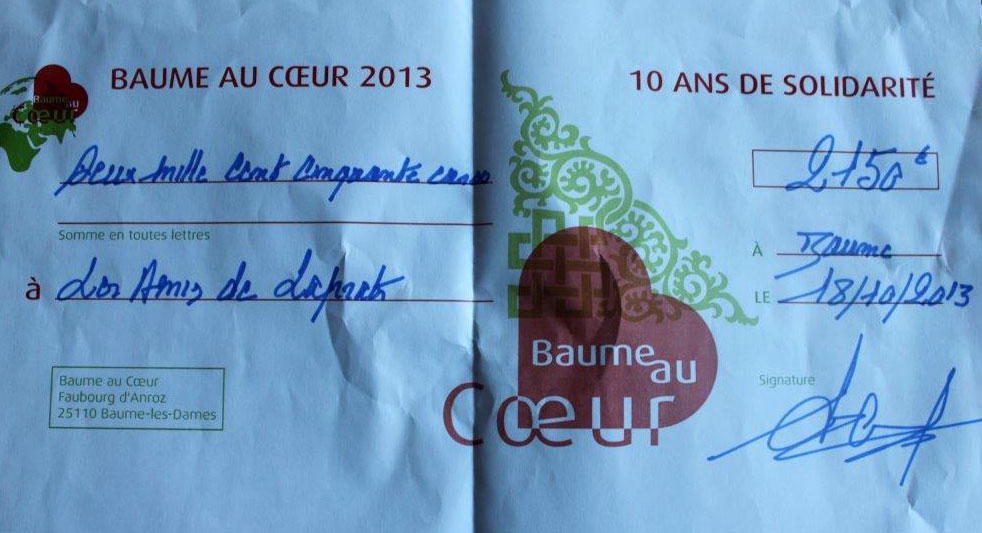 BAUME AU CŒUR 2013
10 ANS DE SOLIDARITÉ
Baume au Cœur
Deux mille cent cinquante euros
2150€
Somme en toutes lettres
À Baume
à Les Amis de
LE 18/10/2013
Baume au
Cœur
Baume au Cœur
Faubourg d'Anroz
25110 Baume-les-Dames
Signature